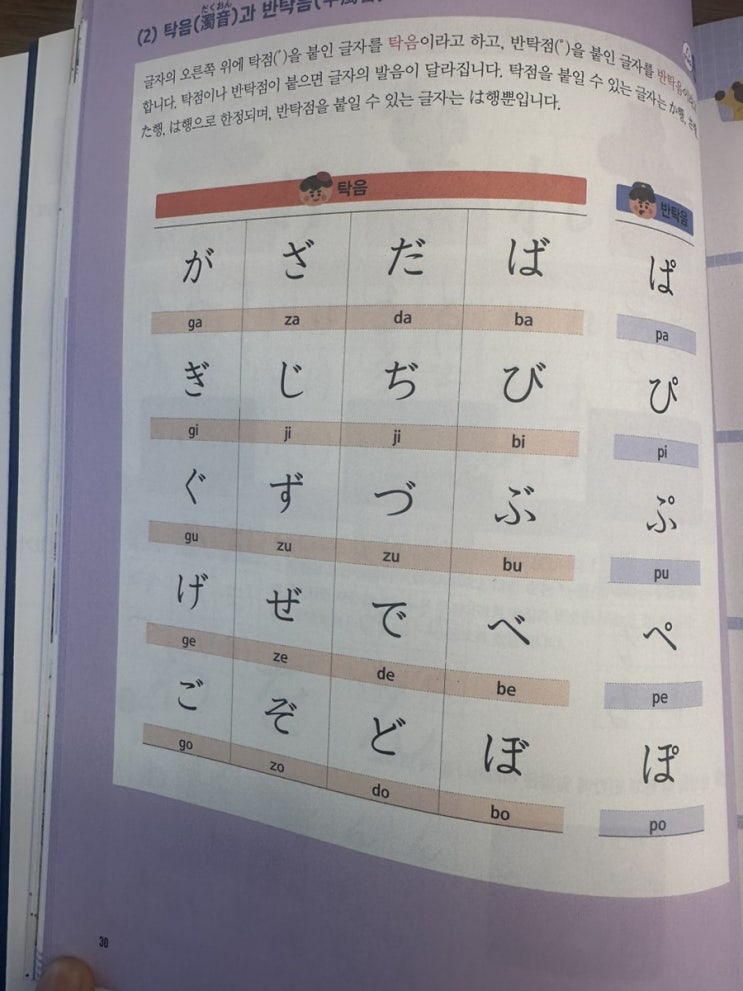 だくおん
(2) 탁음(濁音)과 반탁음(
글자의 오른쪽 위에 탁점(゛)을 붙인 글자를 탁음이라고 하고, 반탁점(゜)을 붙인 글자를 반탁음
합니다. 탁점이나 반탁점이 붙으면 글자의 발음이 달라집니다. 탁점을 붙일 수 있는 글자는 か행,
た행, は행으로 한정되며, 반탁점을 붙일 수 있는 글자는 は행뿐입니다.
탁음 반탁음
が ざ だ ば ぱ
ga za da ba pa
ぎ じ ぢ び ぴ
gi ji ji bi pi
ぐ ず づ ぶ ぷ
gu zu zu bu pu
げ ぜ で べ ぺ
ge ze de be pe
ご ぞ ど ぼ ぽ
go zo do bo po
30